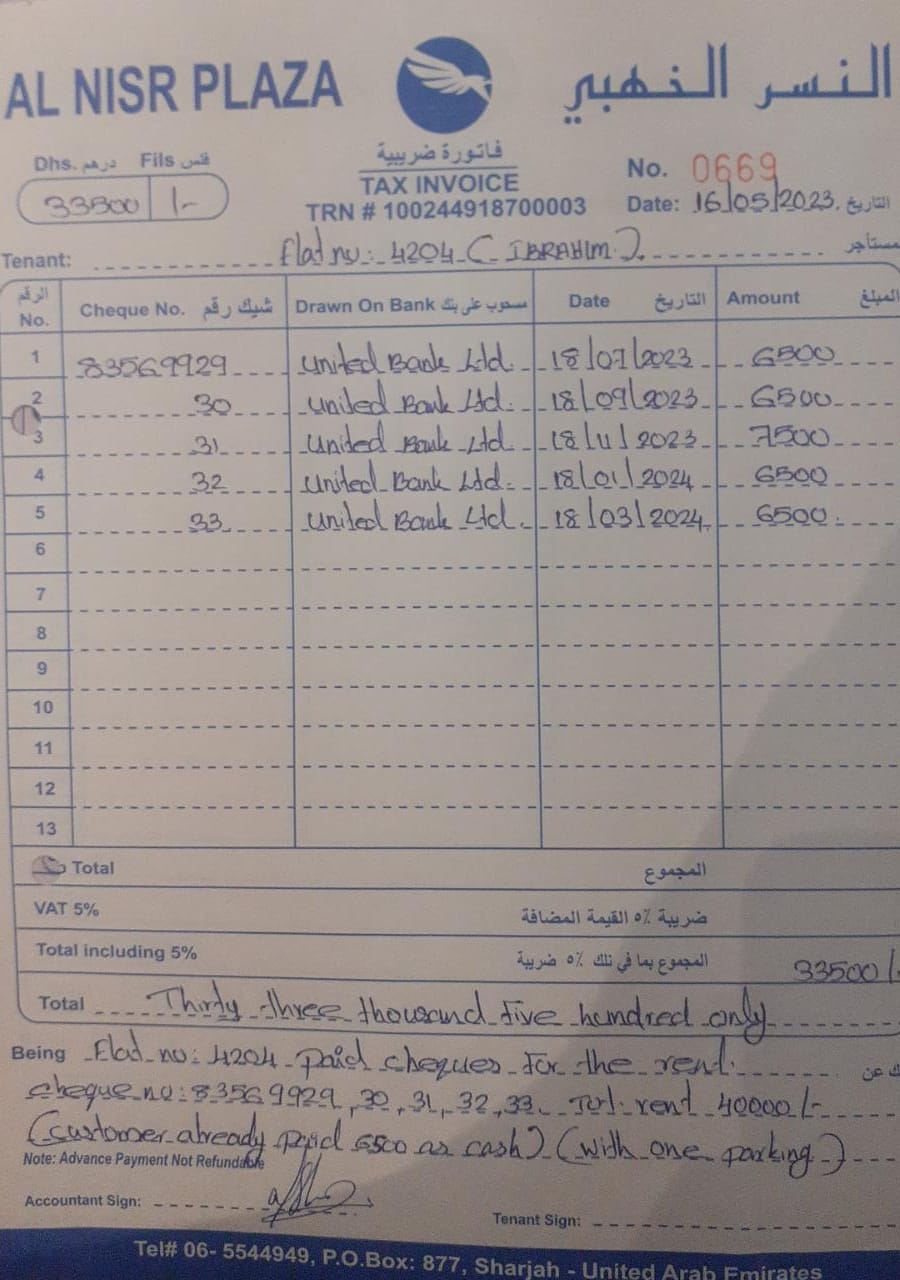 AL NISR PLAZA
النسر الذهبي
Dhs. درهم Fils فلس
33500 /-
فاتورة ضريبية
TAX INVOICE
TRN # 100244918700003
No. 0669
Date: 16/05/2023. التاريخ
Tenant: Flat no: 4204 ( IBRAHIM ) مستأجر
الرقم No. Cheque No. شيك رقم Drawn On Bank مسحوب على بنك Date التاريخ Amount المبلغ
1 83569929 United Bank Ltd. 18/07/2023 6500
2 30 United Bank Ltd. 18/09/2023 6500
3 31 United Bank Ltd. 18/11/2023 7500
4 32 United Bank Ltd. 18/01/2024 6500
5 33 United Bank Ltd. 18/03/2024 6500
6
7
8
9
10
11
12
13
Total المجموع
VAT 5% ضريبة ٥٪ القيمة المضافة
Total including 5% المجموع بما في ذلك ٥٪ ضريبة 33500/-
Total Thirty three thousand five hundred only
Being Flat no: 4204 paid cheques for the rent.
cheque no: 83569929, 30, 31, 32, 33. Tot: rent 40000/-
(customer already paid 6500 as cash) (with one parking)
Note: Advance Payment Not Refundable
Accountant Sign:
Tenant Sign:
Tel# 06- 5544949, P.O.Box: 877, Sharjah - United Arab Emirates